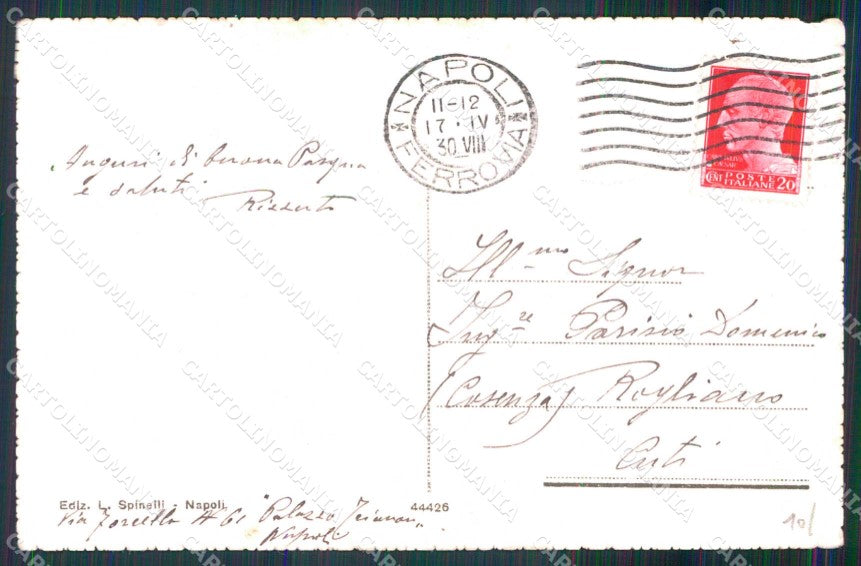 NAPOLI
11-12
17·IV
30 VIII
FERROVIA
IVLIVS
CAESAR
POSTE
CENT ITALIANE 20
Auguri di buona Pasqua
e saluti
Ill.mo Signor
Ing.re Parisio Domenico
(Cosenza) Rogliano
Cuti
Ediz. L. Spinelli - Napoli
44426
Via Forcella # 61 "Palazzo
Napoli
10/
CARTOLINOMANIA